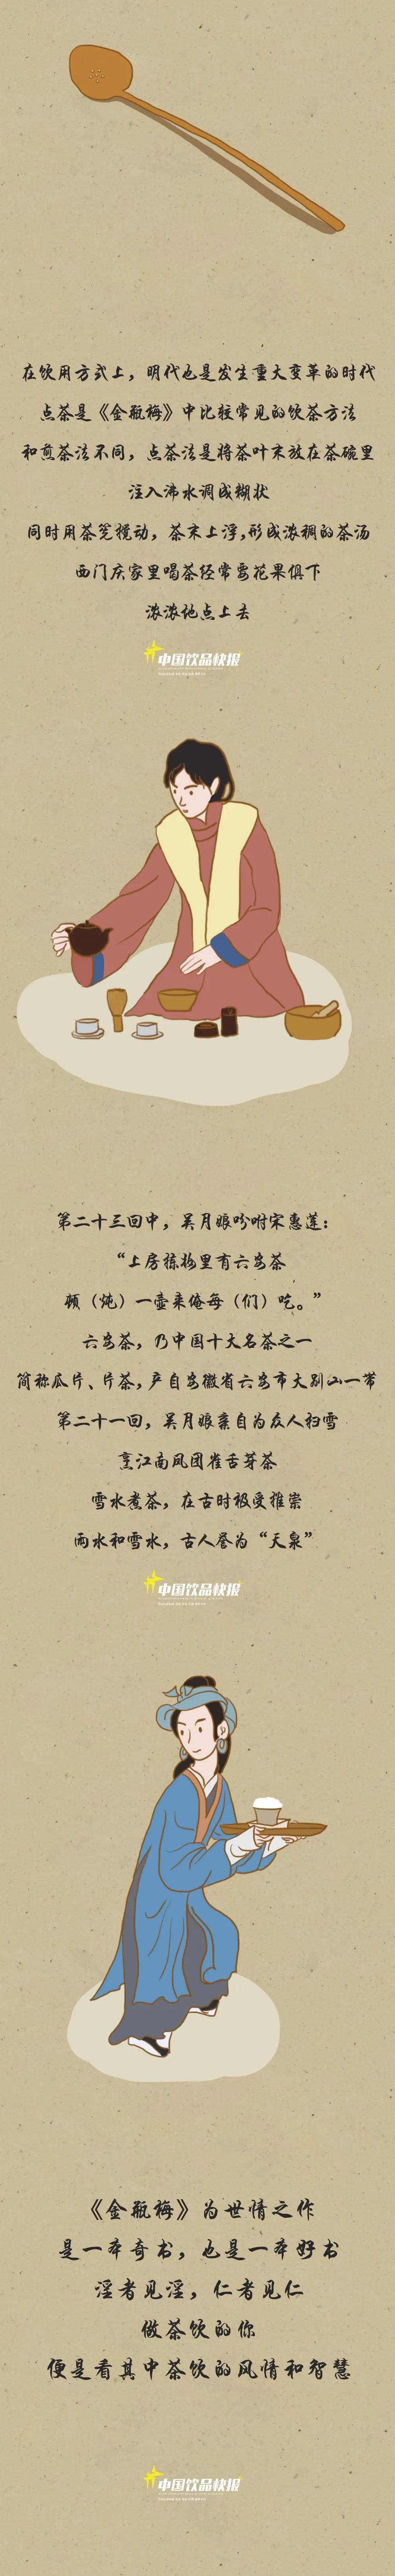 在饮用方式上，明代也是发生重大变革的时代
点茶是《金瓶梅》中比较常见的饮茶方法
和煎茶法不同，点茶法是将茶叶末放在茶碗里
注入沸水调成糊状
同时用茶筅搅动，茶末上浮,形成浓稠的茶汤
西门庆家里喝茶经常要花果俱下
浓浓地点上去
中国饮品快报
第二十三回中，吴月娘吩咐宋惠莲：
“上房拣妆里有六安茶
顿（炖）一壶来俺每（们）吃。”
六安茶，乃中国十大名茶之一
简称瓜片、片茶，产自安徽省六安市大别山一带
第二十一回，吴月娘亲自为众人扫雪
烹江南凤团雀舌芽茶
雪水煮茶，在古时极受推崇
雨水和雪水，古人誉为“天泉”
中国饮品快报
《金瓶梅》为世情之作
是一本奇书，也是一本好书
淫者见淫，仁者见仁
做茶饮的你
便是看其中茶饮的风情和智慧
中国饮品快报